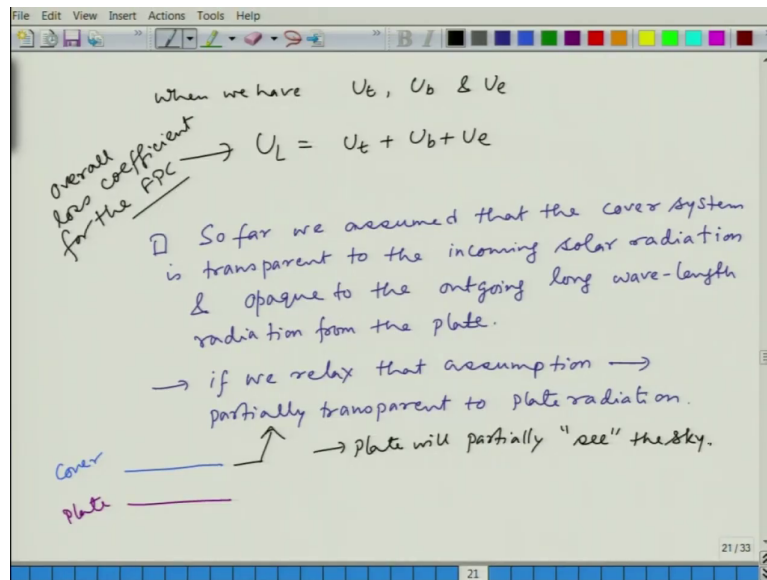 File Edit View Insert Actions Tools Help
When we have Ut, Ub & Ue
overall
loss coefficient
for the FPC → UL = Ut + Ub + Ue
□ So far we assumed that the cover system
is transparent to the incoming solar radiation
& opaque to the outgoing long wave-length
radiation from the plate.
→ if we relax that assumption →
partially transparent to plate radiation.
→ Plate will partially "see" the sky.
Cover
Plate
21 / 33
21